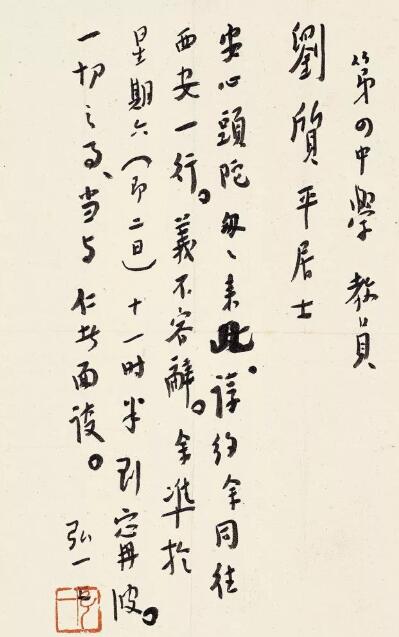 第四中學 教員
劉質平居士
安心頭陀匆〻来此。諄約余同往
西安一行。義不容辭。余準於
星期六(即二日)十一时半到甯波。
一切之事、当与仁者面談。
弘一